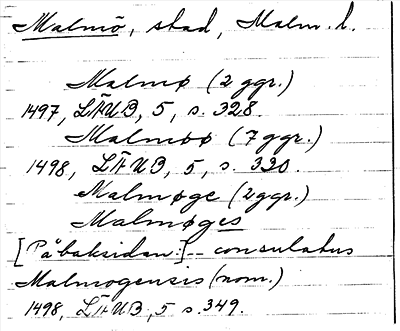 Malmö, stad, Malm. h.
Malmø (2 ggr.)
1497, LÄUB, 5, s. 328.
Malmöö (7 ggr.)
1498, LÄUB, 5, s. 330.
Malmøge (2 ggr.)
Malmøges
[På baksidan:] – consulatus
Malmogensis (nom.)
1498, LÄUB, 5 s. 349.